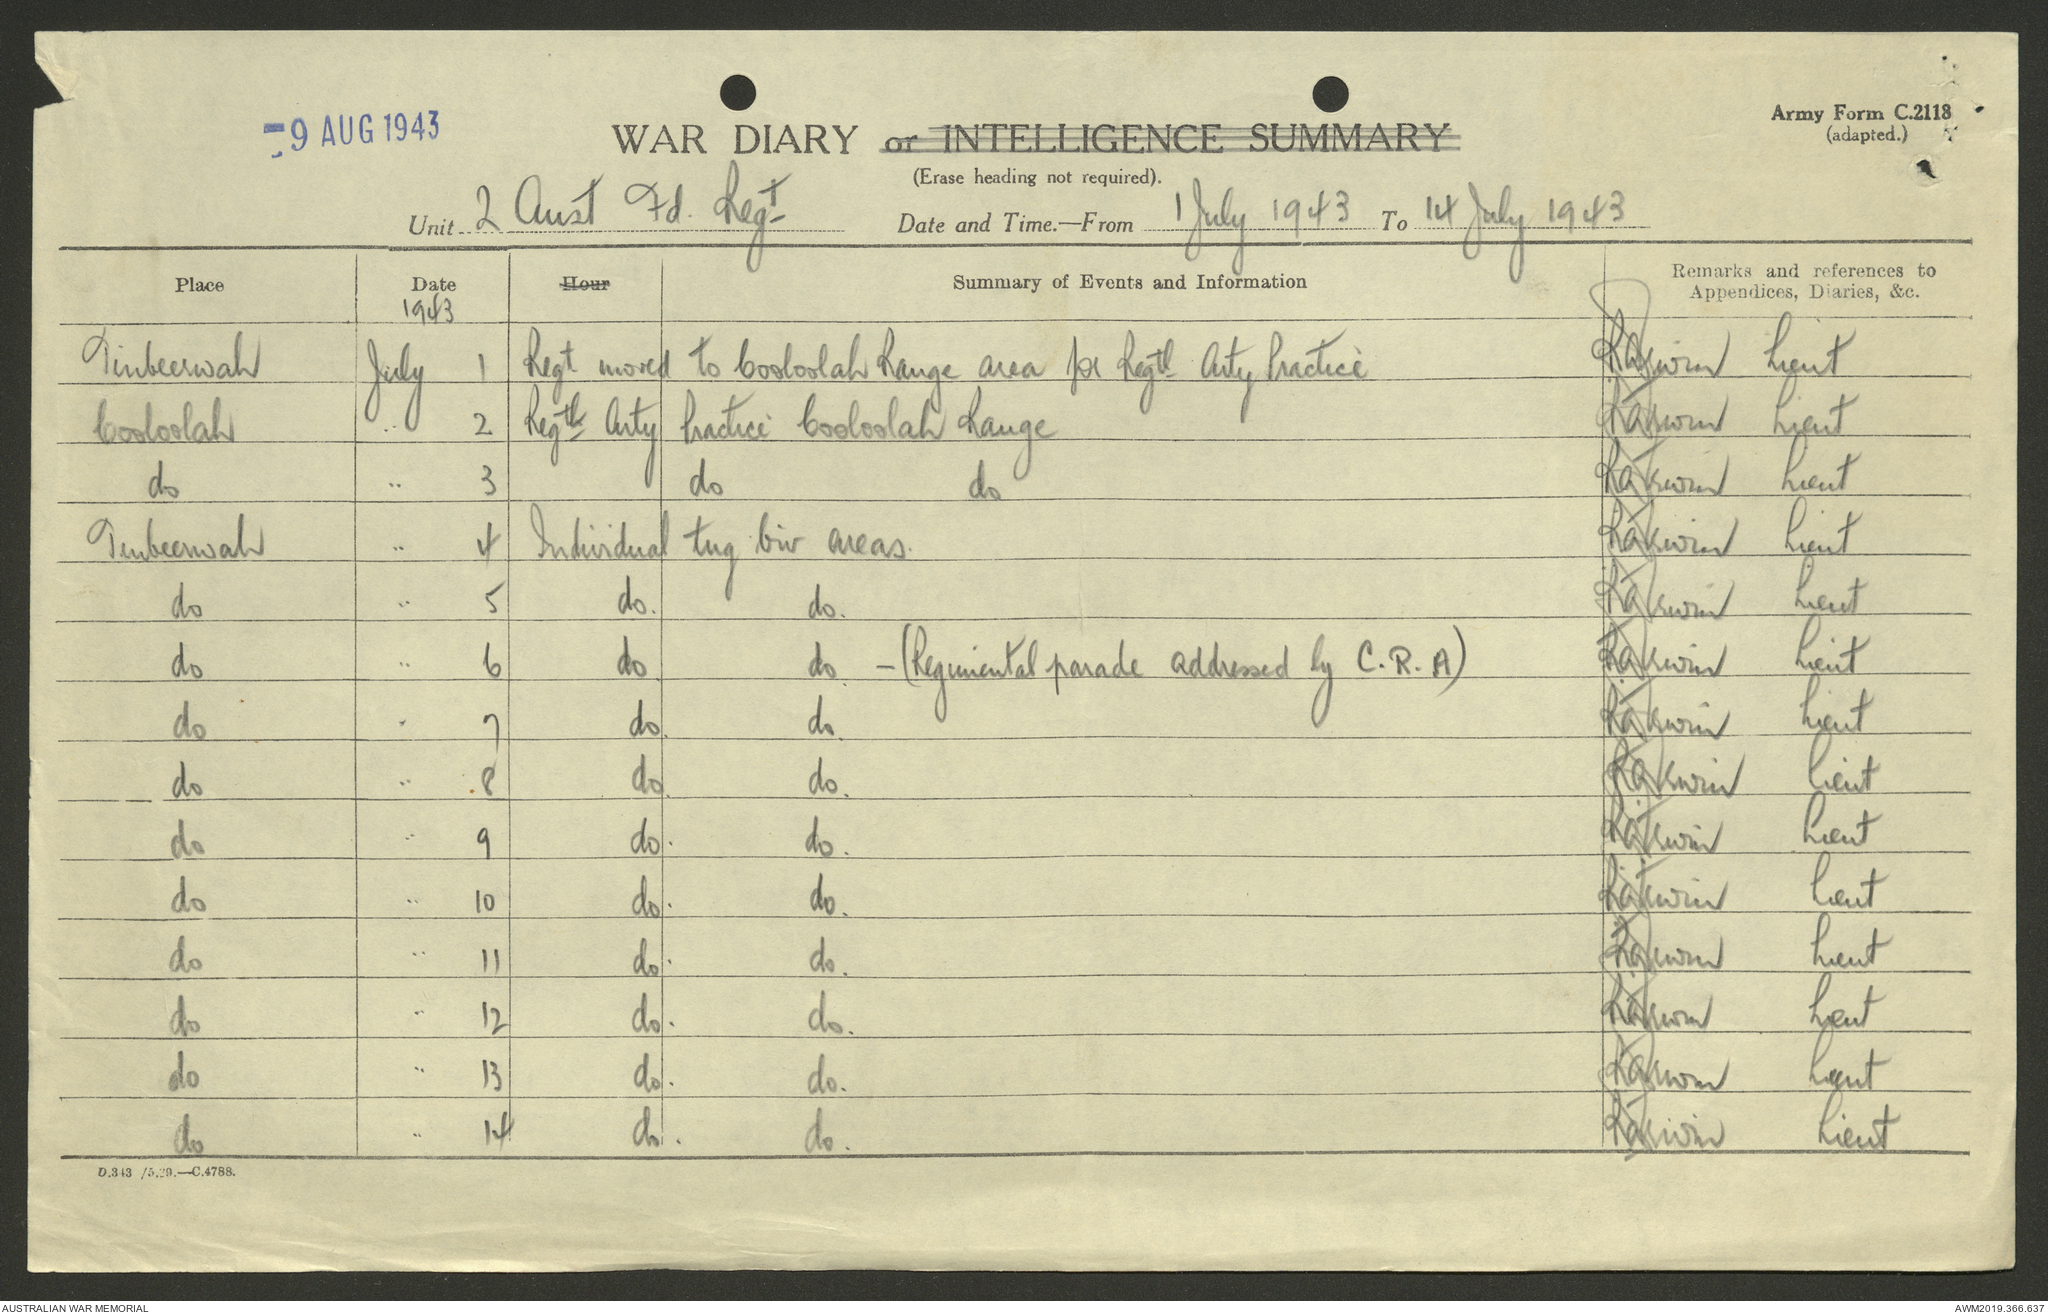 -9 AUG 1943
Army Form C.2118
(adapted.)
WAR DIARY or INTELLIGENCE SUMMARY
(Erase heading not required).
Unit 2 Aust Fd. Regt Date and Time.—From 1 July 1943 To 14 July 1943
Place Date Hour Summary of Events and Information Remarks and references to Appendices, Diaries, &c.
1943
Tinbeerwah July 1 Regt moved to Cooloolah Range area for Regtl Arty Practice Lieut
Cooloolah " 2 Regtl Arty Practice Cooloolah Range Lieut
do " 3 do do Lieut
Tinbeerwah " 4 Individual tng biv areas. Lieut
do " 5 do. do. Lieut
do " 6 do. do. - (Regimental parade addressed by C.R.A) Lieut
do " 7 do. do. Lieut
do " 8 do. do. Lieut
do " 9 do. do. Lieut
do " 10 do. do. Lieut
do " 11 do. do. Lieut
do " 12 do. do. Lieut
do " 13 do. do. Lieut
do " 14 do. do. Lieut
D.343 /5.39.—C.4788.
AUSTRALIAN WAR MEMORIAL AWM2019.366.637